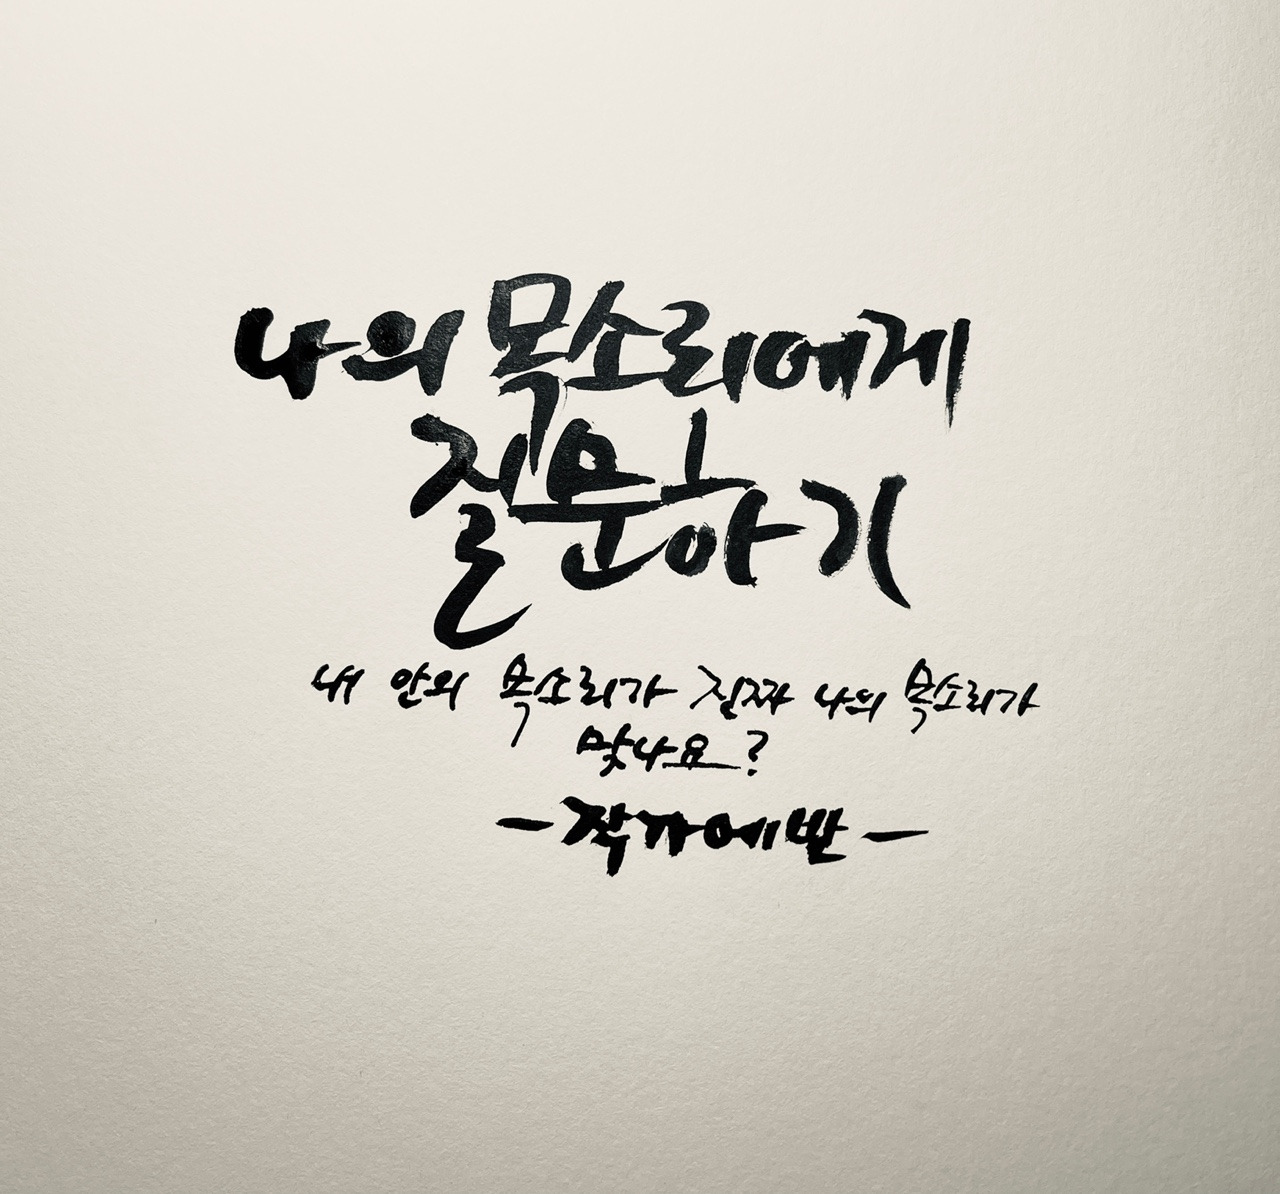 나의 목소리에게
질문하기
내 안의 목소리가 진짜 나의 목소리가
맞나요?
-작가에반-